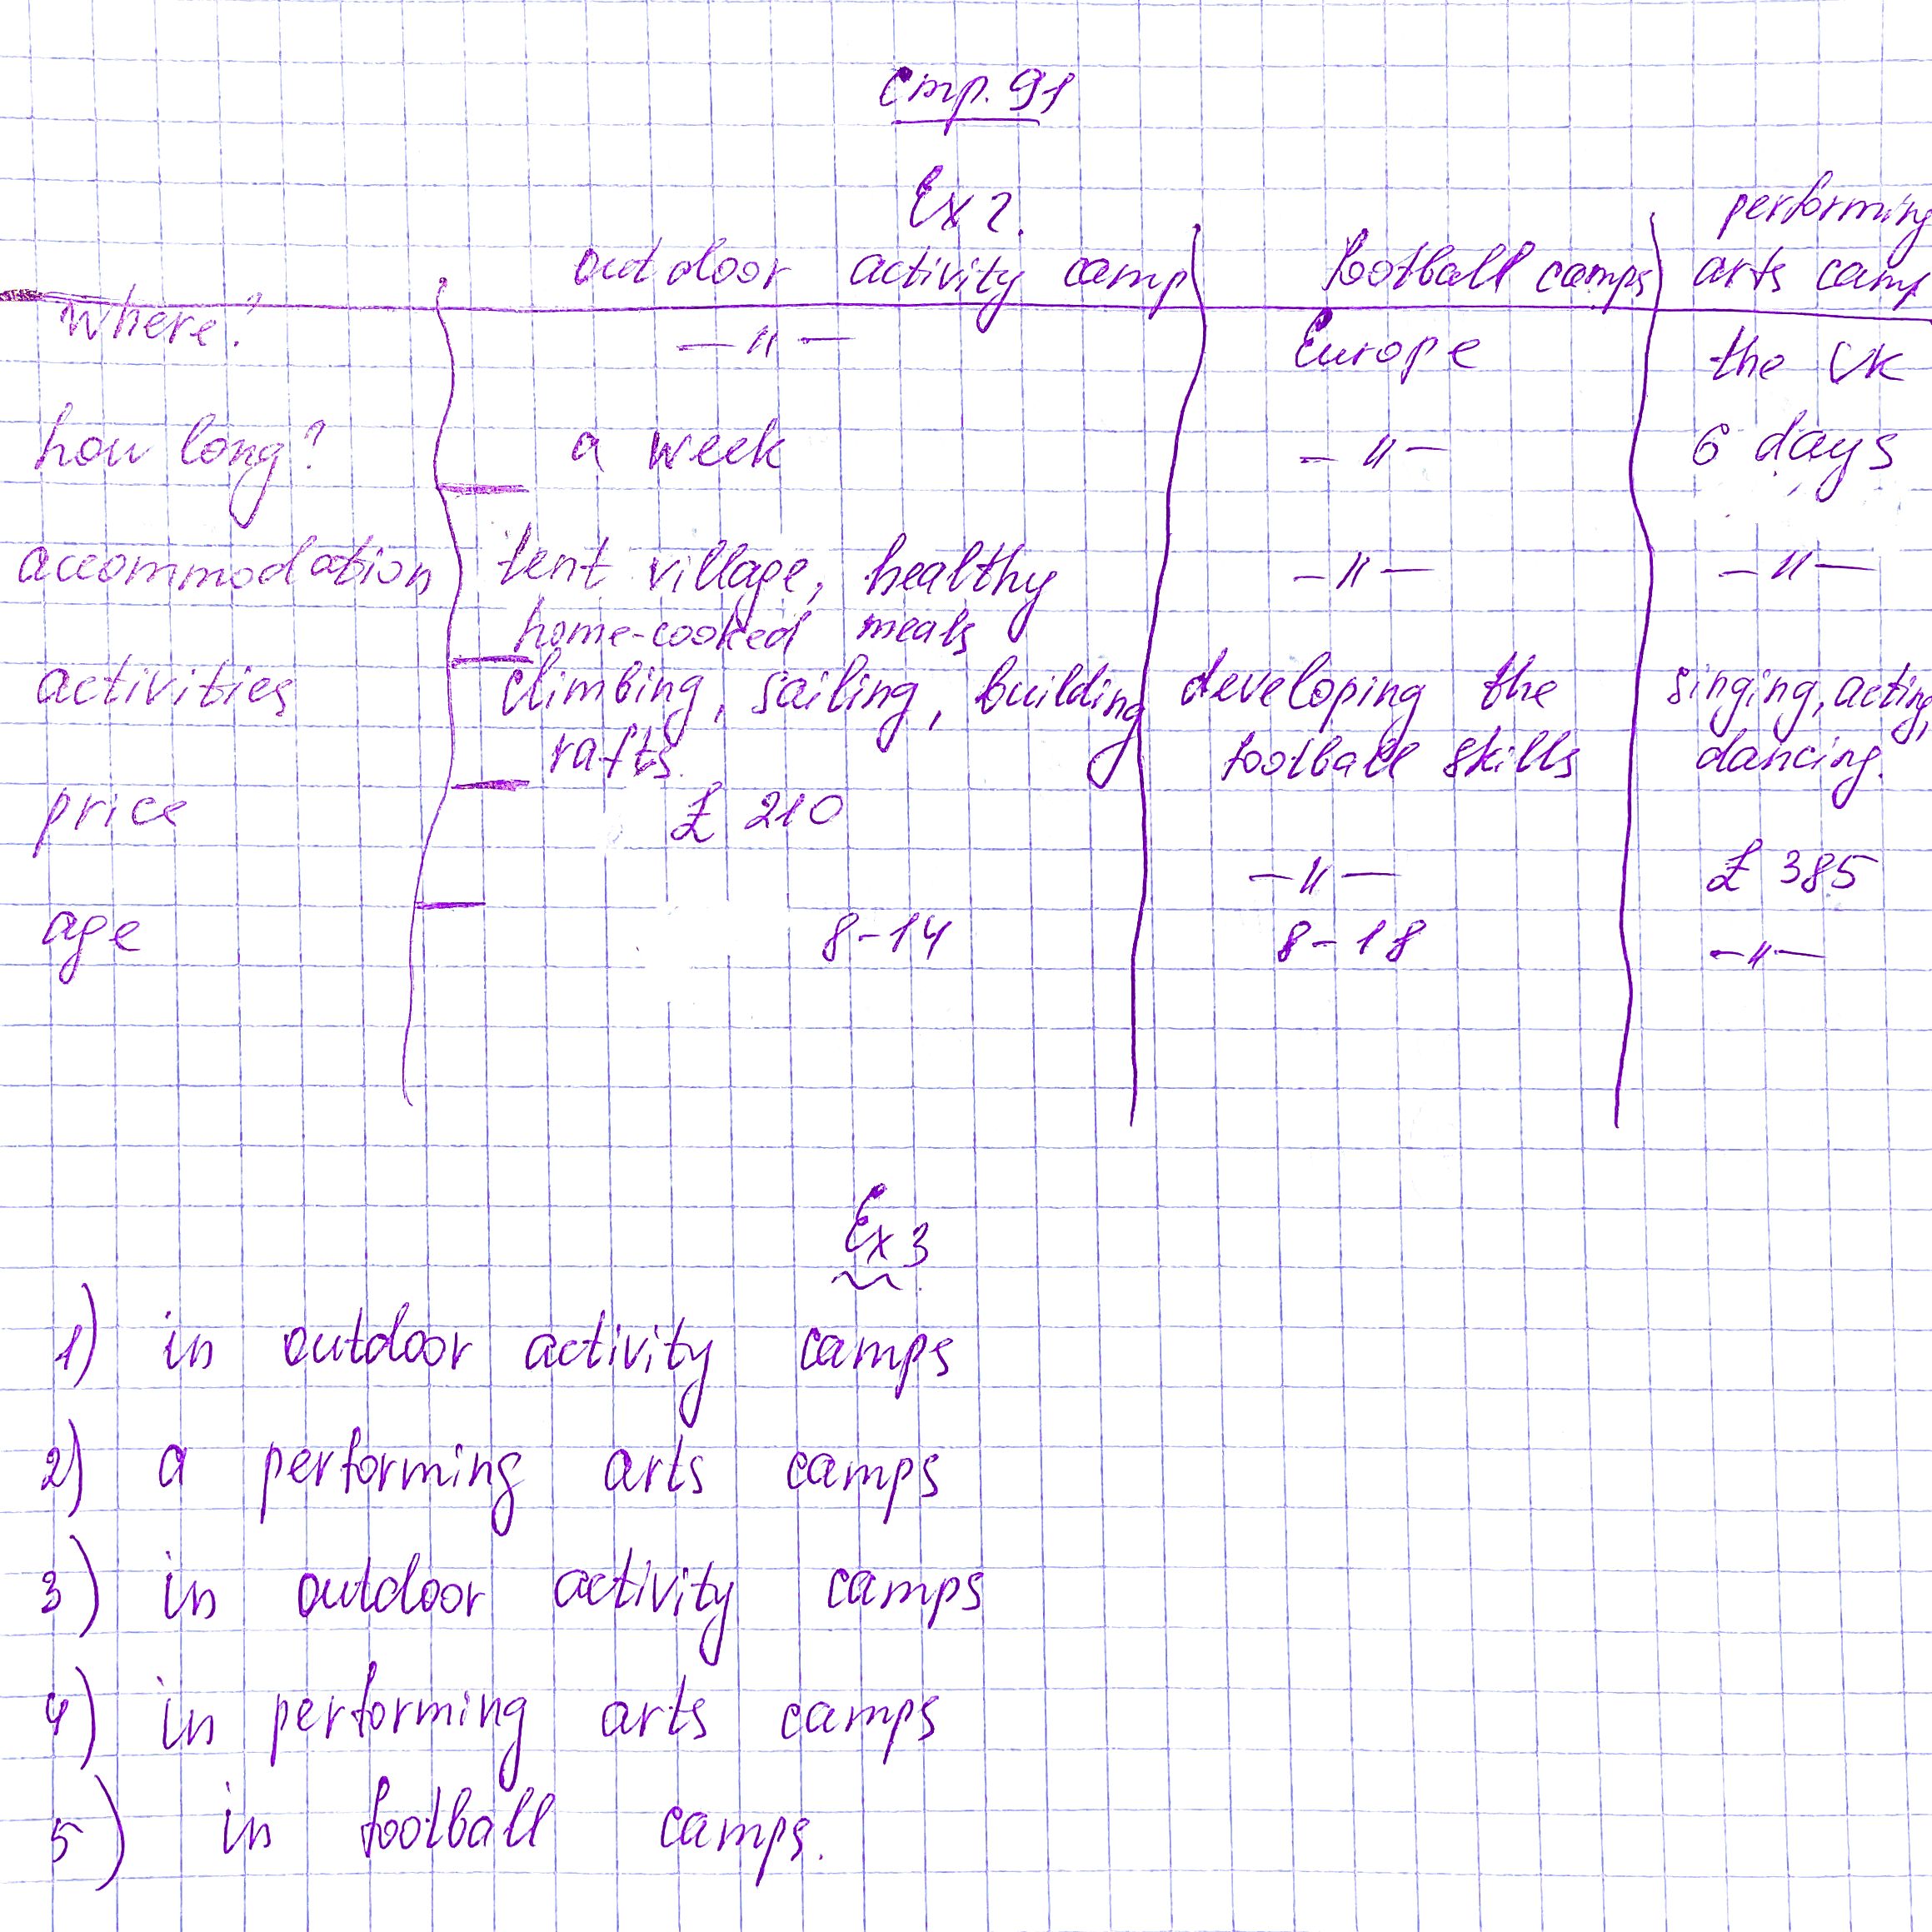 стр. 91
Ex 2.
outdoor activity camp football camps performing arts camp
where? — " — Europe the UK
how long? a week — " — 6 days
accommodation tent village, healthy home-cooked meals — " — — " —
activities climbing, sailing, building rafts. developing the football skills singing, acting, dancing.
price £ 210 — " — £ 385
age 8-14 8-18 — " —
Ex 3
1) in outdoor activity camps
2) a performing arts camps
3) in outdoor activity camps
4) in performing arts camps
5) in football camps.